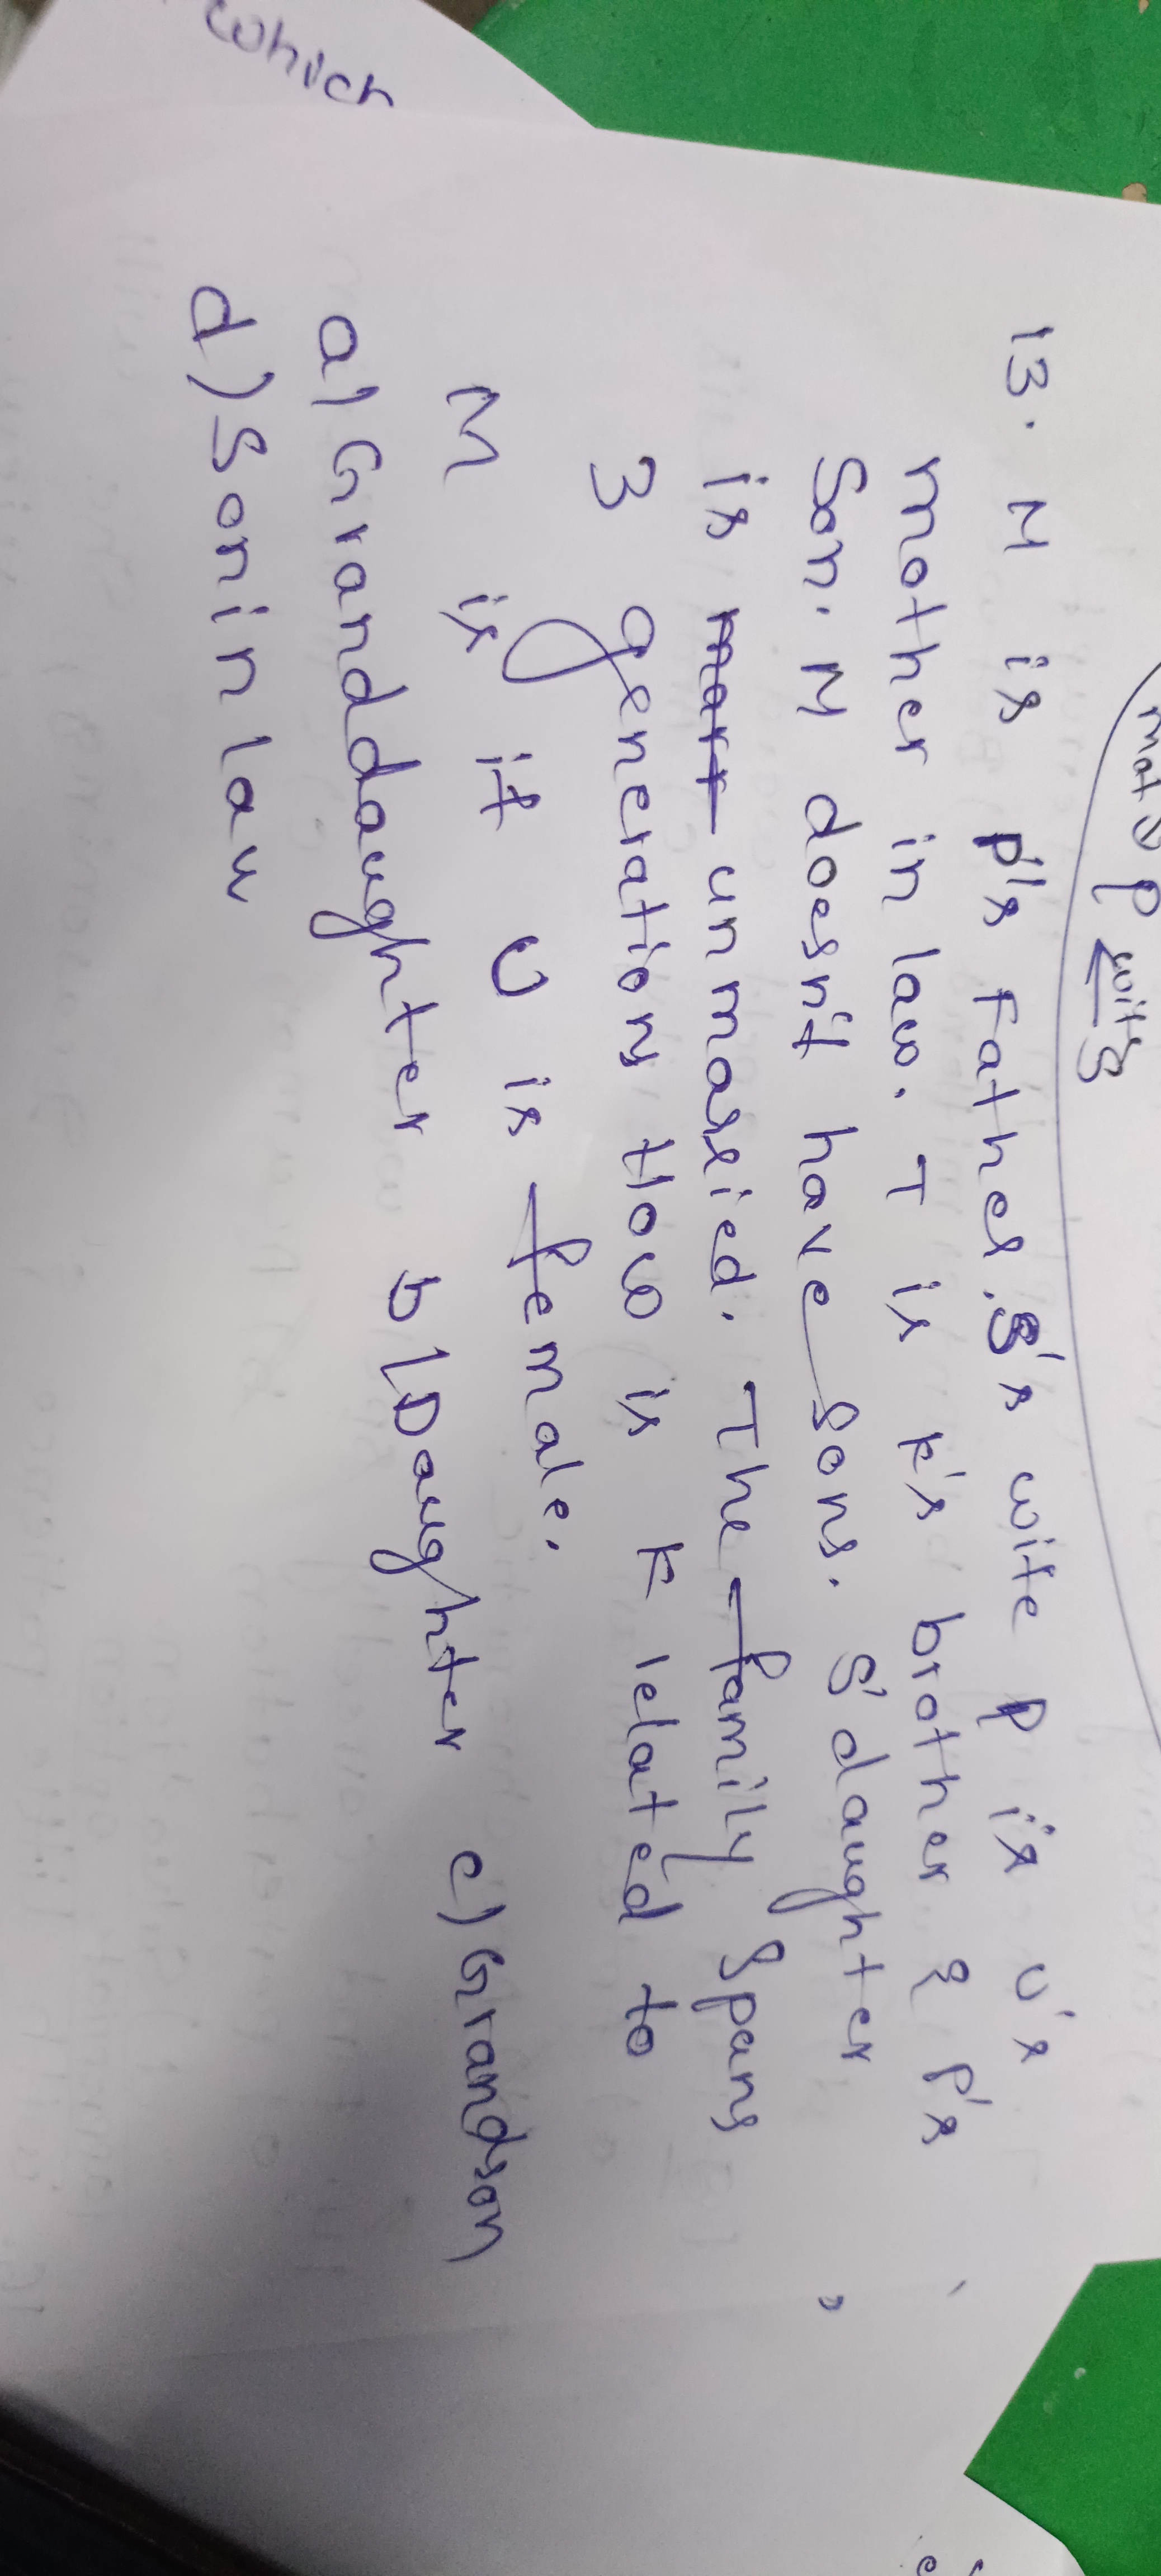 mat P with S
13. M is P's Father. S's wife P is U's
mother in law. T is K's brother & P's
son. M doesn't have sons. S' daughter
is mart unmarried. The family spans
3 generations How is K related to
M is if U is female.
a) Granddaughter b) Daughter c) Grandson
d) Son in law
which